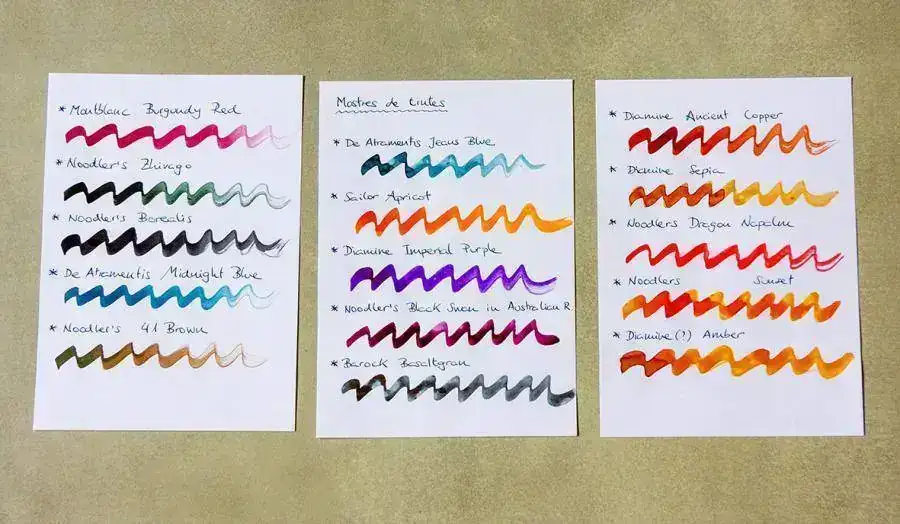 * Montblanc Burgundy Red
* Noodler's Zhivago
* Noodler's Borealis
* De Atramentis Midnight Blue
* Noodler's 41 Brown
Mostres de tintes
* De Atramentis Jeans Blue
* Sailor Apricot
* Diamine Imperial Purple
* Noodler's Black Swan in Australian R.
* Barock Basaltgrau
* Diamine Ancient Copper
* Diamine Sepia
* Noodlers Dragon Napalm
* Noodlers Sunset
* Diamine(?) Amber